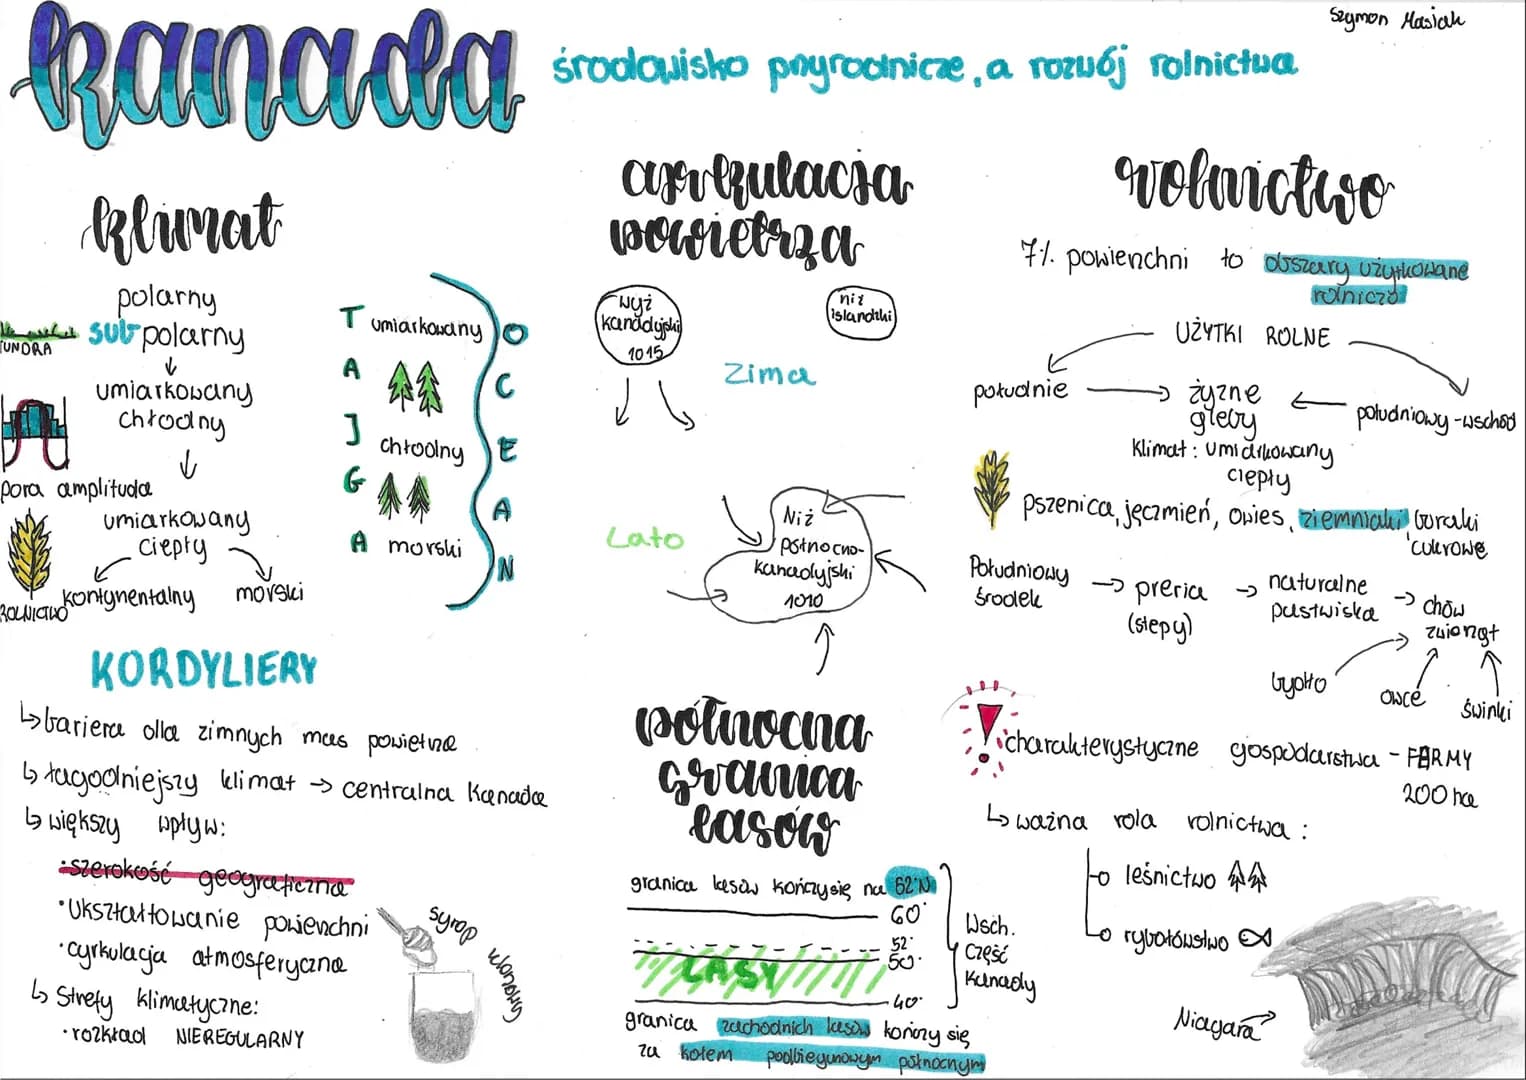 Szymon Masiak
kanada
środowisko przyrodnicze, a rozwój rolnictwa
klimat
polarny
subpolarny
TUNDRA
umiarkowany
chłodny
pora amplituda
umiarkowany
ciepły
kontynentalny
morski
ROLNICTWO
TAJGA
umiarkowany
chłodny
morski
OCEAN
KORDYLIERY
↳ bariera dla zimnych mas powietrza
↳ łagodniejszy klimat → centralna Kanada
↳ większy wpływ:
• szerokość geograficzna
• ukształtowanie powierzchni
• cyrkulacja atmosferyczna
↳ Strefy klimatyczne:
• rozkład NIEREGULARNY
syrop klonowy
cyrkulacja
powietrza
wyż
kanadyjski
1015
niż
islandzki
Zima
Lato
Niż
północno-
kanadyjski
1010
północna
granica
lasów
granica lasów kończy się na 52°N
60°
52°
50°
LASY
40°
Wsch.
część
Kanady
granica zachodnich lasów kończy się
za kołem podbiegunowym północnym
rolnictwo
7% powierzchni to obszary użytkowane
rolniczo
UŻYTKI ROLNE
południe → żyzne
gleby
← południowy-wschód
klimat: umiarkowany
ciepły
pszenica, jęczmień, owies, ziemniaki, buraki
cukrowe
Południowy
środek
→ preria
(stepy)
→ naturalne
pastwiska
→ chów
zwierząt
bydło
owce
świnki
! charakterystyczne gospodarstwa - FARMY
200 ha
↳ ważna rola rolnictwa:
leśnictwo
rybołówstwo
Niagara